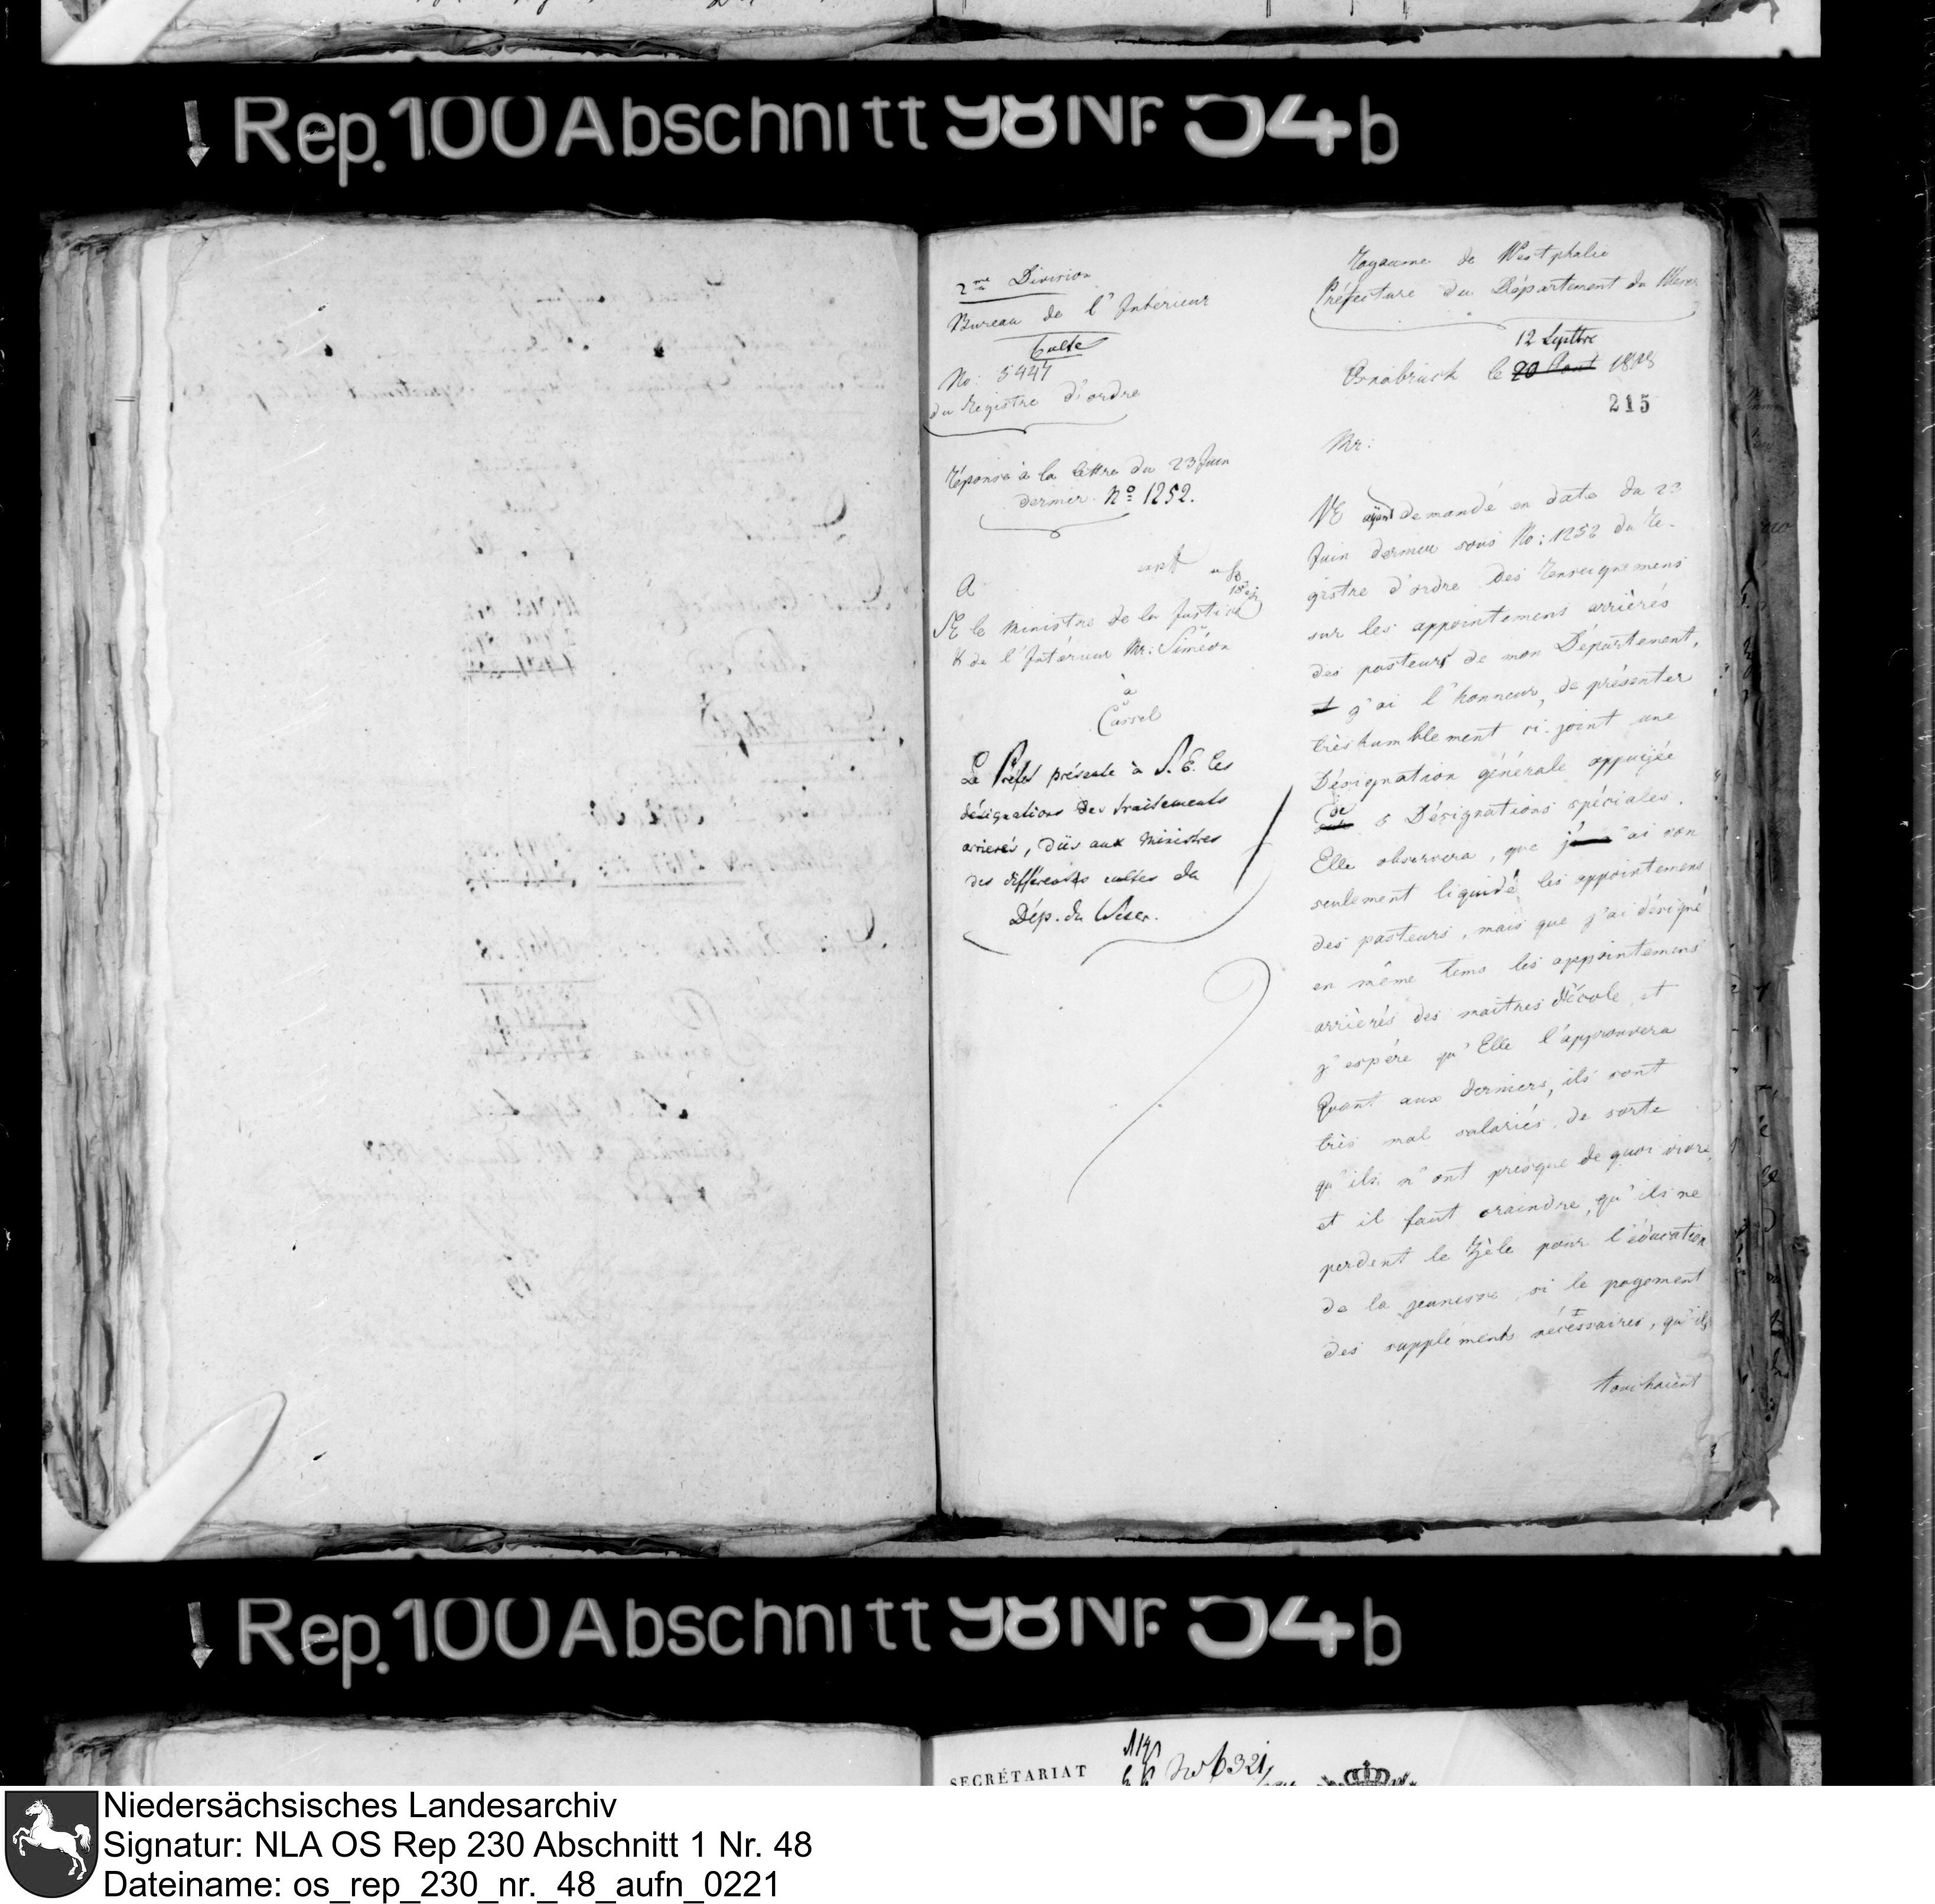 Rep. 100 Abschnitt 98 Nr. 54 b
2me Division
Bureau de l'Intérieur
Culte
No: 5447
du Registre d'ordre
Réponse à la lettre du 23 Juin
dernier. No 1252.
A
SE le Ministre de la Justice
& de l'Intérieur Mr: Siméon
à
Cassel
Le Préfet présente à S. E. les
désignations des traitements
arrierés, dûs aux Ministres
des différents cultes du
Dép. du Weser.
Royaume de Westphalie
Préfecture du Département du Wéser
12 Septbre
Osnabruck le 20 Aout 1808
215
Mr:
VE ayant demandé en date du 23
Juin dernier sous No: 1252 du Re-
gistre d'ordre des Renseignemens
sur les appointemens arriérés
des pasteurs de mon Département,
et j'ai l'honneur, de présenter
très humblement ci-joint une
Désignation générale appuijée
de 5 Désignations spéciales.
Elle observera, que j'ai non
seulement liquidé les appointemens
des pasteurs, mais que j'ai désigné
en même tems les appointemens
arriérés des maitres d'école, et
j'espére qu'Elle l'approuvera
Quant aux derniers, ils sont
très mal salariés, de sorte
qu'ils n'ont presque de quoi vivre,
et il faut craindre, qu'ils ne
perdent le Zèle pour l'éducation
de la jeunesse, si le payement
des suppléments nécessaires, qu'ils
touchaient
Rep. 100 Abschnitt 98 Nr. 54 b
SECRÉTARIAT
Niedersächsisches Landesarchiv
Signatur: NLA OS Rep 230 Abschnitt 1 Nr. 48
Dateiname: os_rep_230_nr._48_aufn_0221